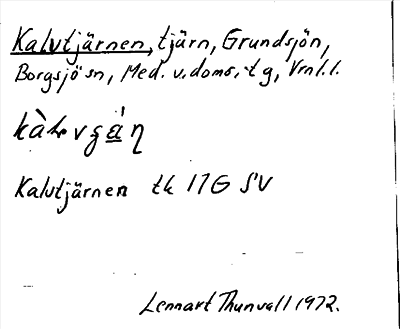 Kalvtjärnen, tjärn, Grundsjön,
Borgsjö sn, Med. v. doms. tg, Vrnl. l.
Kalvtjärnen tk 17G SV
Lennart Thunvall 1972.